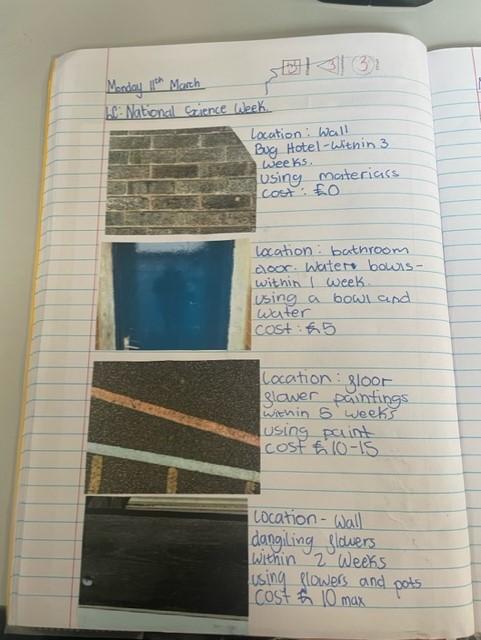 Monday 11th March
LC: National Science Week.
3
3
Location: Wall
Bug Hotel-within 3
weeks.
using materials
cost: £0
Location: bathroom
door. Water bowls-
within 1 week.
using a bowl and
water
cost: £5
Location: floor
flower paintings
within 5 weeks
using paint
cost £10-15
Location- Wall
dangiling flowers
within 2 weeks
using flowers and pots
cost £10 max